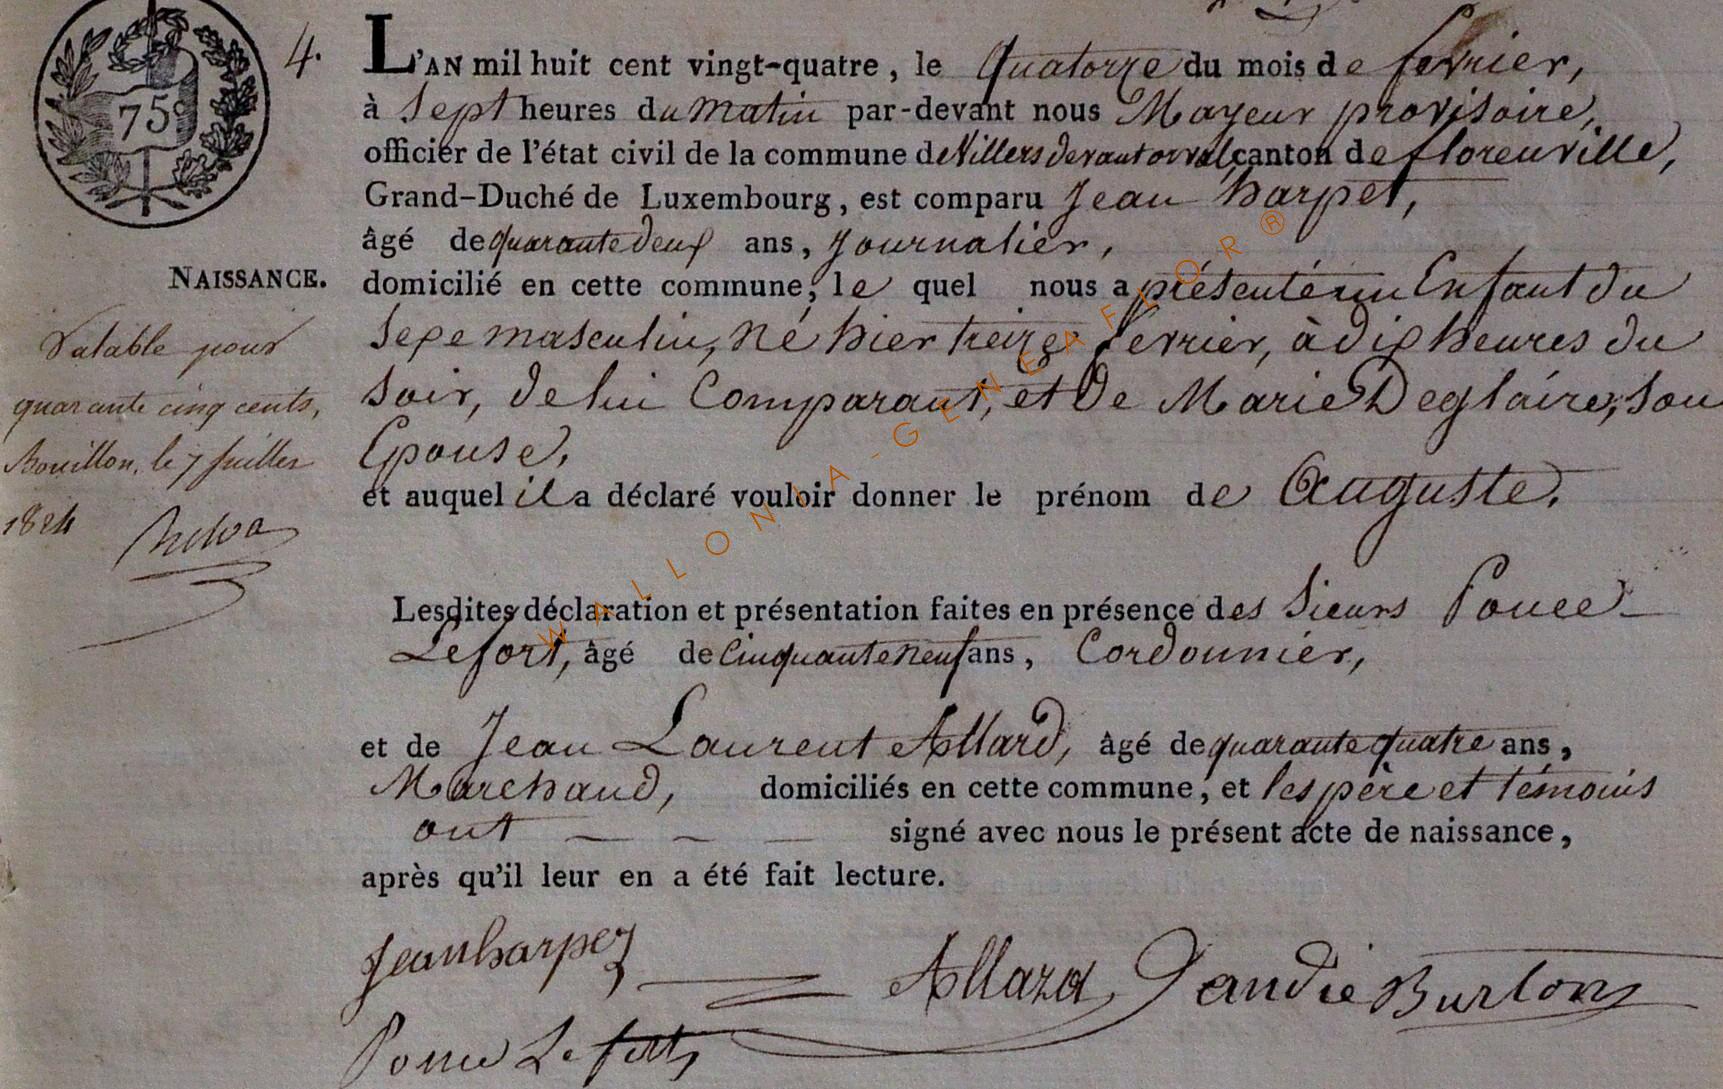 75c
4.
L'AN mil huit cent vingt-quatre, le Quatorze du mois de fevrier,
à Sept heures du matin par-devant nous Mayeur provisoire,
officier de l'état civil de la commune de Villers devant orval, canton de florenville,
Grand-Duché de Luxembourg, est comparu Jean harpet,
âgé de quarante deux ans, Journalier,
NAISSANCE.
domicilié en cette commune, le quel nous a présenté un Enfant du
Sexe masculin, né hier treize fevrier, à dix heures du
Soir, de lui Comparant, et De Marie Deglaire, Son
Epouse,
et auquel il a déclaré vouloir donner le prénom de Auguste.
Valable pour
quarante cinq cents,
Bouillon, le 7 Juillet
1824
Lesdites déclaration et présentation faites en présence des Sieurs Ponce
Lefort, âgé de Cinquante neuf ans, Cordonnier,
et de Jean Laurent Allard, âgé de quarante quatre ans,
Marchand, domiciliés en cette commune, et les père et témoins
ont signé avec nous le présent acte de naissance,
après qu'il leur en a été fait lecture.
Jean harpez
Allard Burton
Ponce Lefort
WALLONIA-GENEAFLOR®